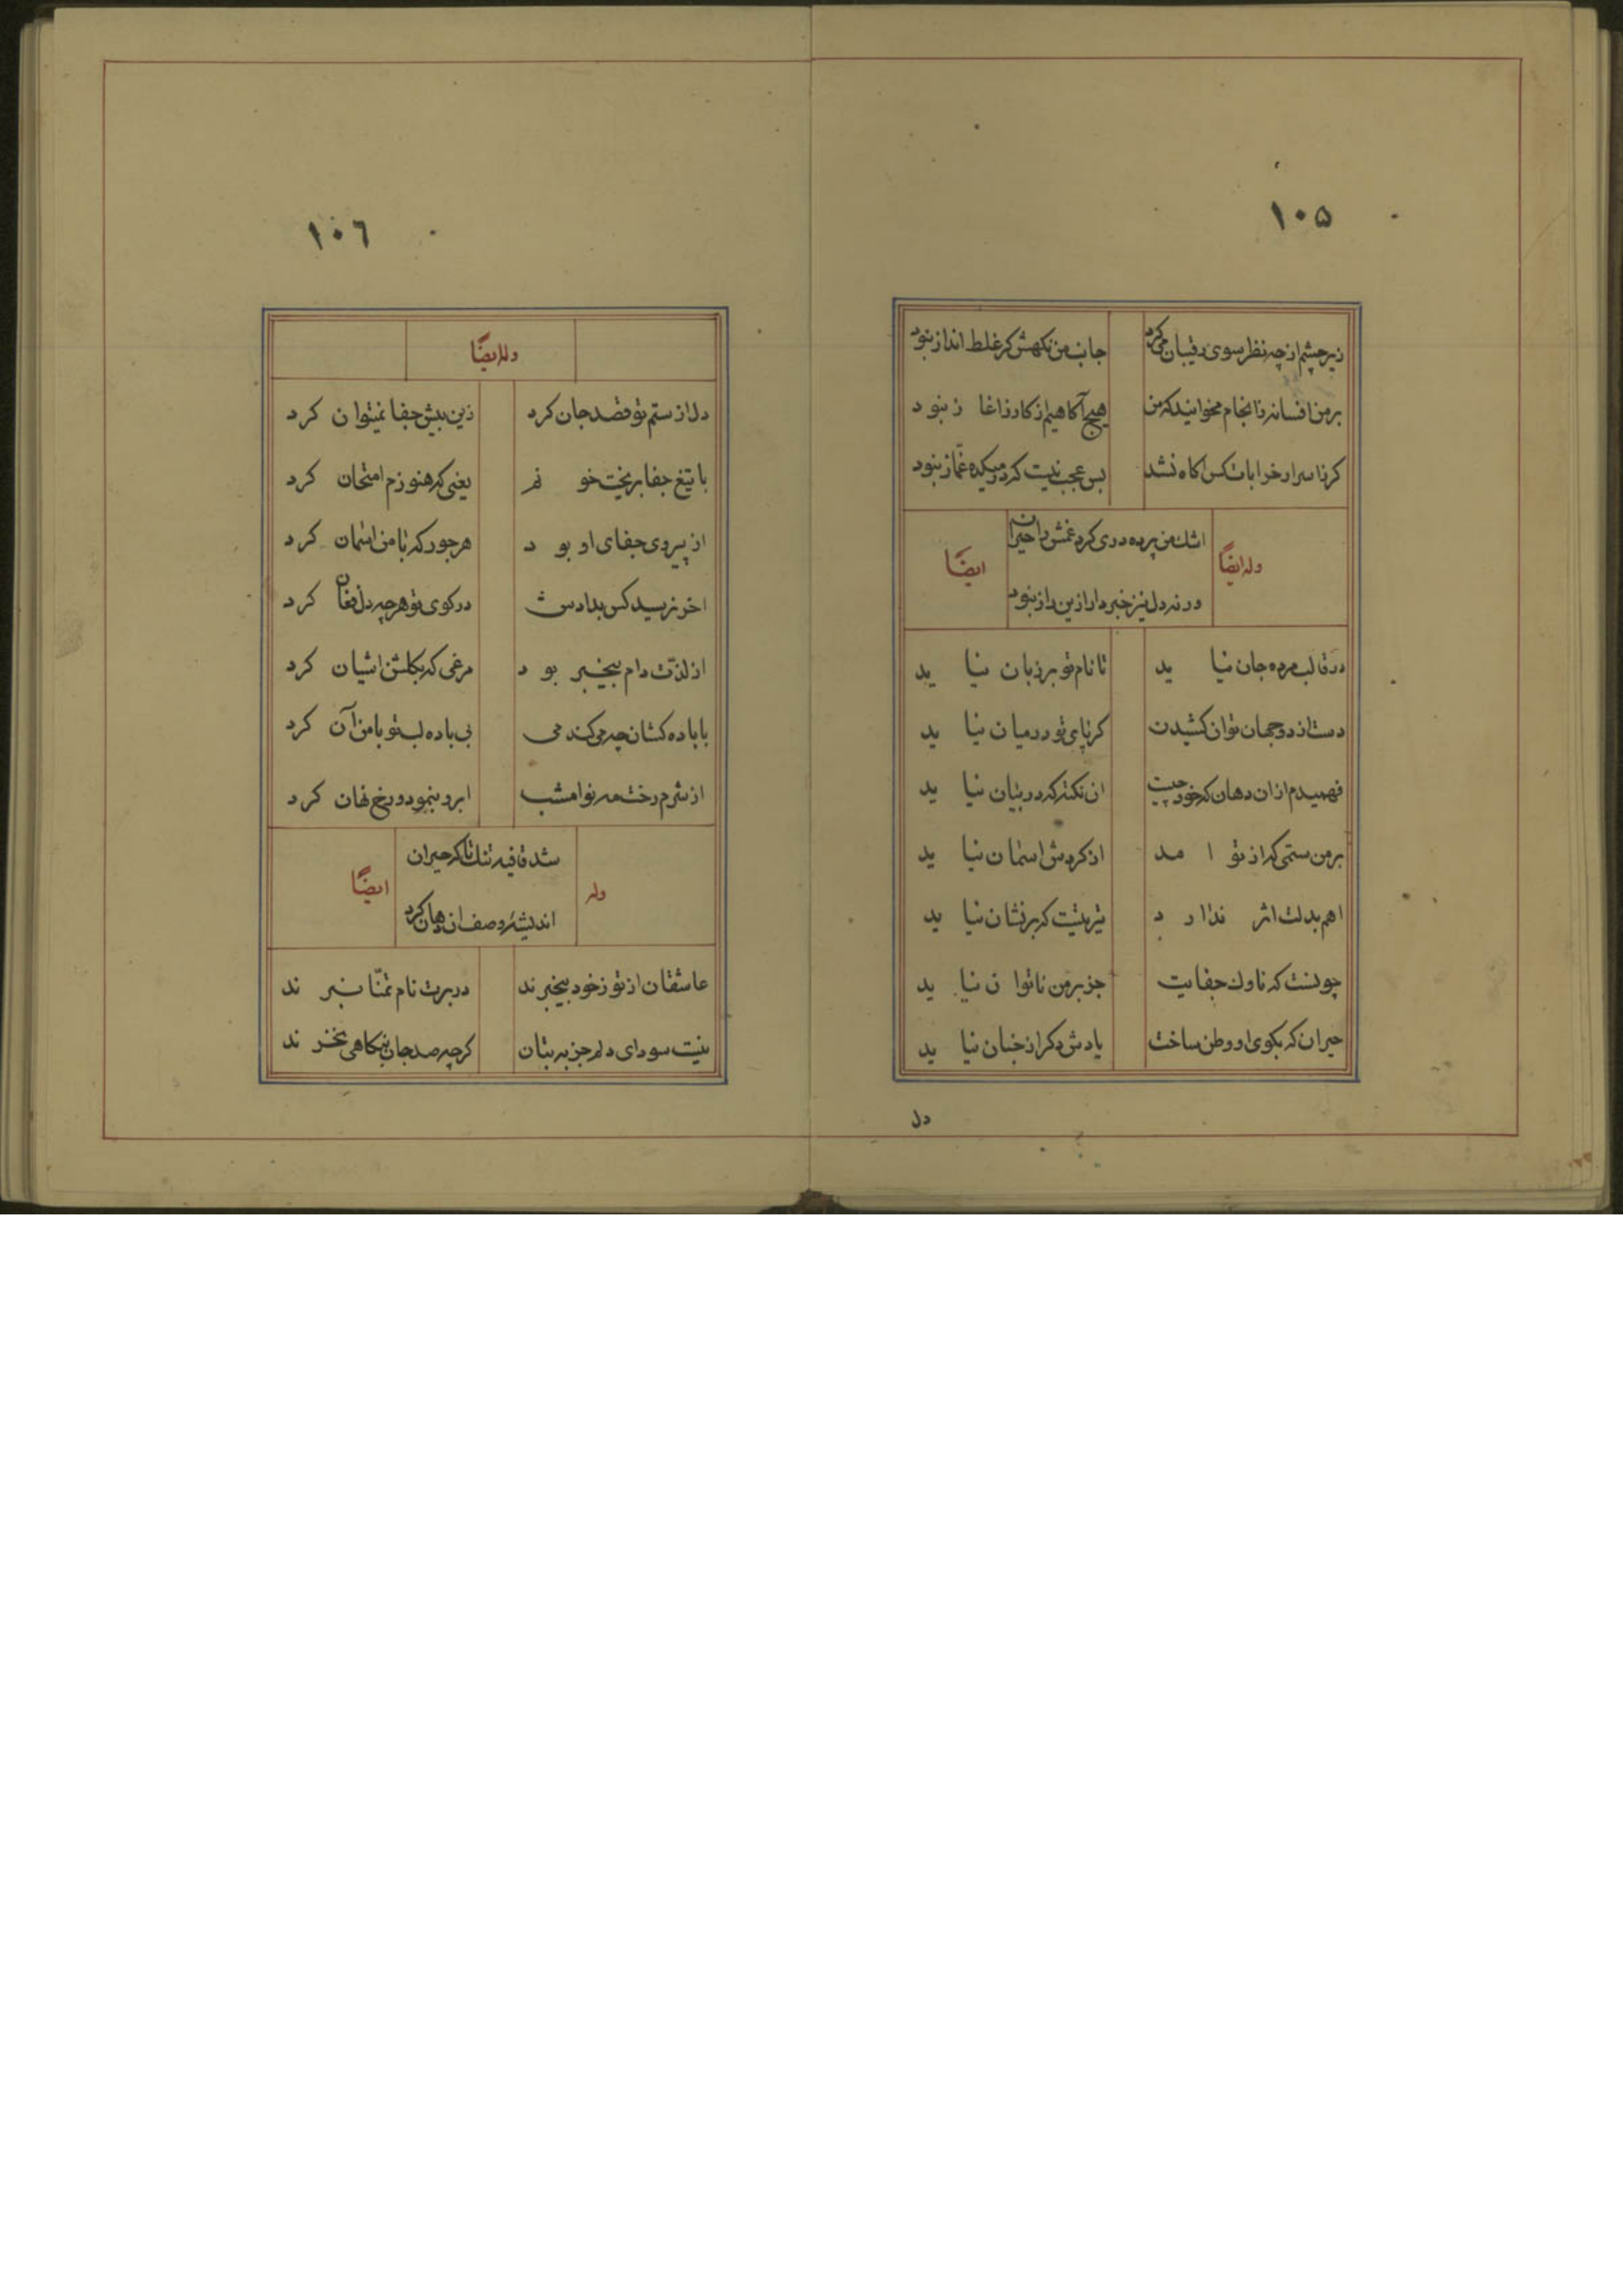 ١٠۵
زیر چشم از چه نظر سوی رقیبان میکرد جانب من نکهش کر غلط انداز نبود
بر من افسانه زانجام مخوانید که من هیچ آکاهیم از کار ز اغاز نبود
کر ز اسرار خرابات کس اکاه نشد بس عجب نیست که در میکده غماز نبود
وله ایضًا
اشک من پرده دری کرد غمش را حیران
ورنه دل نیز خبردار ازین راز نبود
ایضًا
در قالب مرده جان نیاید تا نام تو بر زبان نیاید
دست از دو جهان توان کشیدن کر پای تو در میان نیاید
فهمیدم از ان دهان که خود چیست ان نکته که در بیان نیاید
بر من ستمی که از تو امد از کردش اسمان نیاید
اهم بدلت اثر ندارد تیریست که بر نشان نیاید
چونست که ناوک جفایت جز بر من ناتوان نیاید
حیران که بکوی او وطن ساخت یادش دکر از جنان نیاید
دل
١٠٦
وله ایضًا
دل از ستم تو قصد جان کرد زین بیش جفا نمیتوان کرد
با تیغ جفا بریخت خونم یعنی که هنوزم امتحان کرد
از پیروی جفای او بود هر جور که با من اسمان کرد
اخر نرسید کس بدادش در کوی تو هر چه دل فغان کرد
از لذّت دام بیخبر بود مرغی که بکلشن اشیان کرد
با باده کشان چه میکند می بی باده لب تو با من آن کرد
از شرم رخت مه نو امشب ابرو بنمود و رخ نهان کرد
وله
شد قافیه تنک تا که حیران
اندیشهٔ وصف ان دهان کرد
ایضًا
عاشقان از تو ز خود بیخبرند در برت نام تمنّا نبرند
نیست سودای دلم جز به بتان کرچه صد جان بنکاهی نخرند